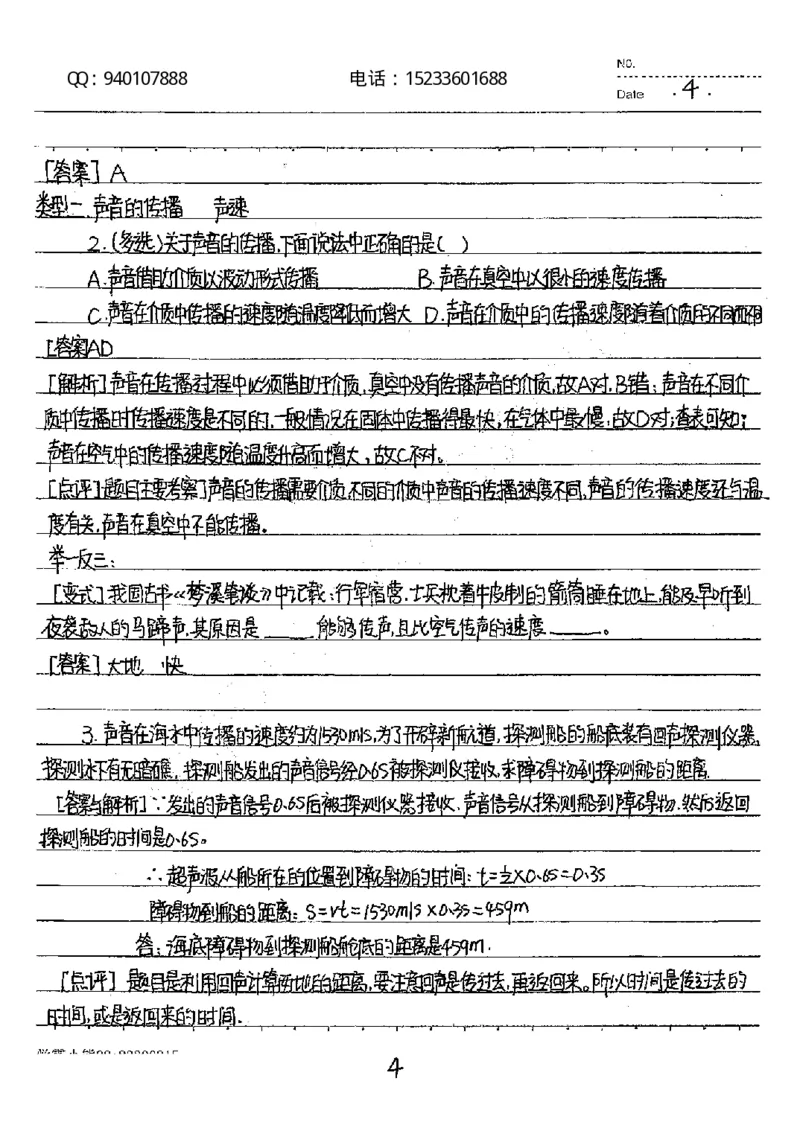 QQ：940107888 电话：15233601688 No.
Date . 4 .
[答案] A
类型一.声音的传播 声速
2.(多选)关于声音的传播,下面说法中正确的是( )
A.声音借助介质以波动形式传播 B.声音在真空中以很小的速度传播
C.声音在介质中传播的速度随温度降低而增大 D.声音在介质中的传播速度随着介质的不同而不同
[答案]AD
[解析]声音在传播过程中必须借助于介质,真空中没有传播声音的介质,故A对.B错;声音在不同介
质中传播时传播速度是不同的,一般情况在固体中传播得最快,在气体中最慢.故D对;查表可知;
声音在空气中的传播速度随温度升高而增大,故C不对。
[点评]题目主要考察了声音的传播需要介质,不同的介质中声音的传播速度不同,声音的传播速度还与温
度有关,声音在真空中不能传播。
举一反三：
[变式]我国古书《梦溪笔谈》中记载:行军宿营.士兵枕着牛皮制的箭筒睡在地上,能及早听到
夜袭敌人的马蹄声,其原因是____能够传声,且比空气传声的速度____。
[答案]大地 快
3.声音在海水中传播的速度约为1530m/s,为了开辟新航道,探测船的船底装有回声探测仪器,
探测水下有无暗礁,探测船发出的声音信号经0.6S被探测仪接收,求障碍物到探测船的距离.
[答案与解析]∵发出的声音信号0.6S后被探测仪器接收.声音信号从探测船到障碍物.然后返回
探测船的时间是0.6S。
∴超声波从船所在的位置到障碍物的时间:t=½×0.6S=0.3S
障碍物到船的距离:S=vt=1530m/s×0.3S=459m
答:海底障碍物到探测船舱底的距离是459m.
[点评] 题目是利用回声计算两地的距离,要注意回声是传过去,再返回来。所以时间是传过去的
时间,或是返回来的时间.
4